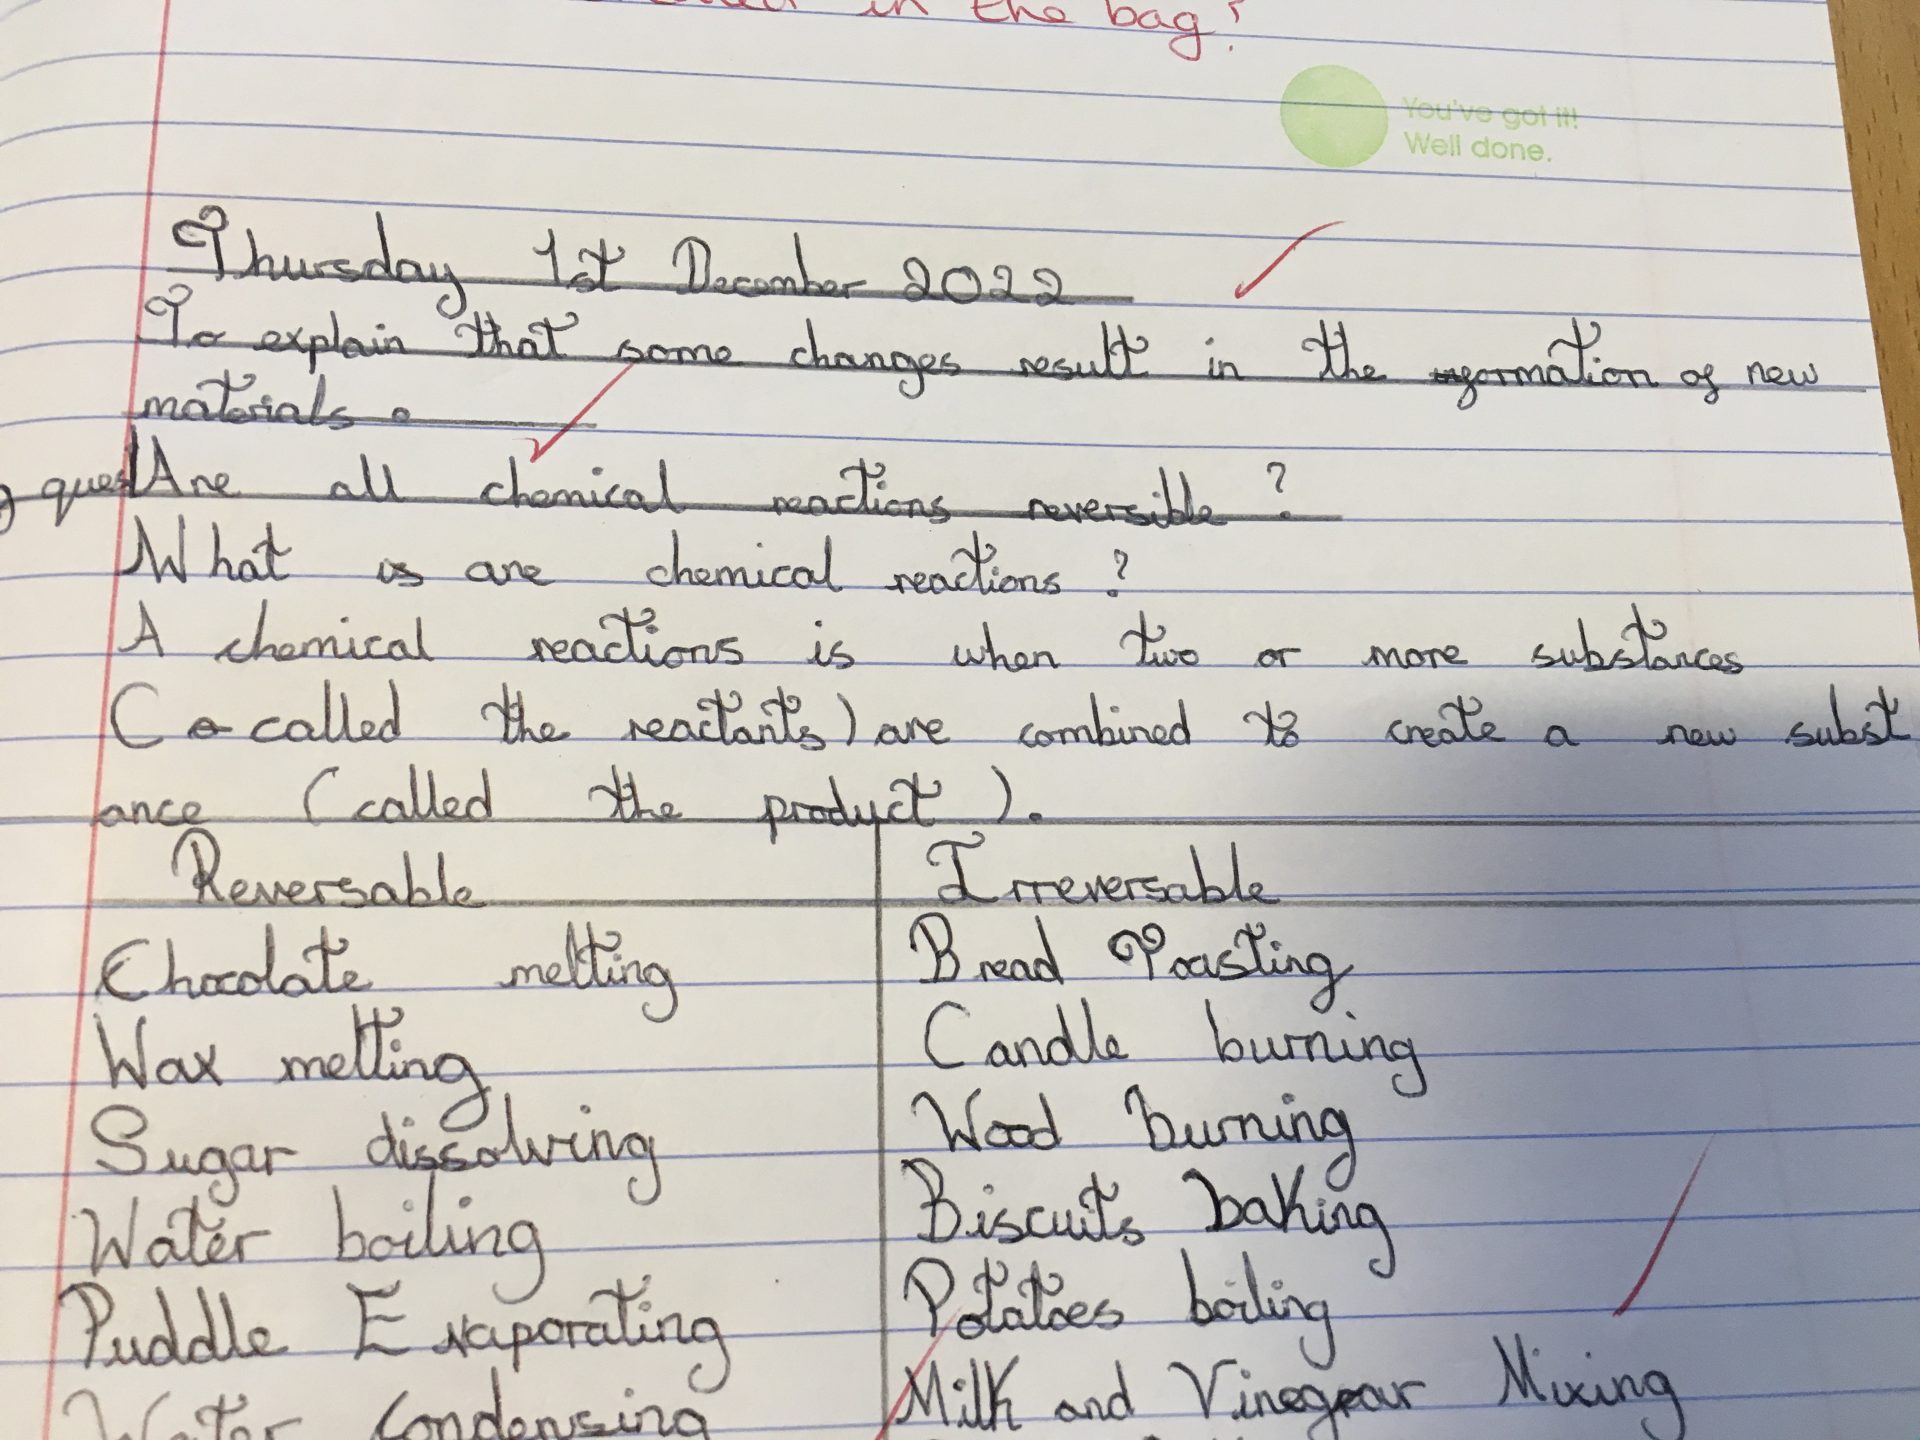 in the bag!
You've got it!
Well done.
Thursday 1st December 2022
To explain that some changes result in the formation of new
materials.
g quest Are all chemical reactions reversible?
What is are chemical reactions?
A chemical reactions is when two or more substances
(called the reactants) are combined to create a new subst
ance (called the product).
Reversable Irreversable
Chocolate melting Bread Toasting
Wax melting Candle burning
Sugar dissolving Wood burning
Water boiling Biscuits baking
Puddle Evaporating Potatoes boiling
Water Condensing Milk and Vinegear Mixing